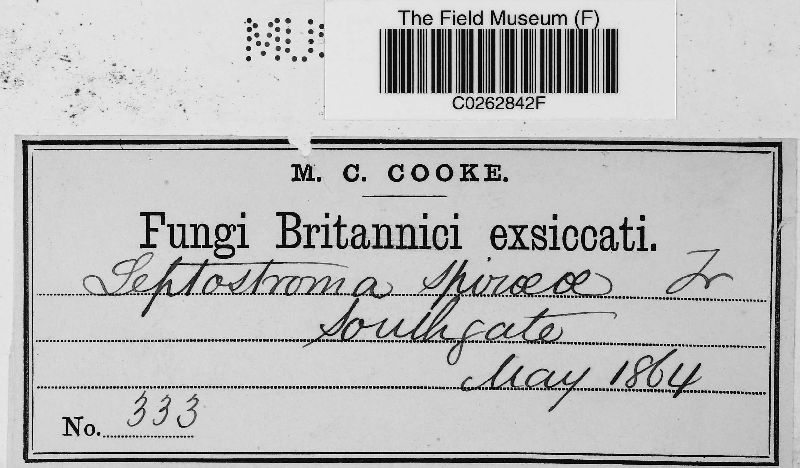 The Field Museum (F)
C0262842F
M. C. COOKE.
Fungi Britannici exsiccati.
Leptostroma spiræœ Fr
Southgate
May 1864
No. 333